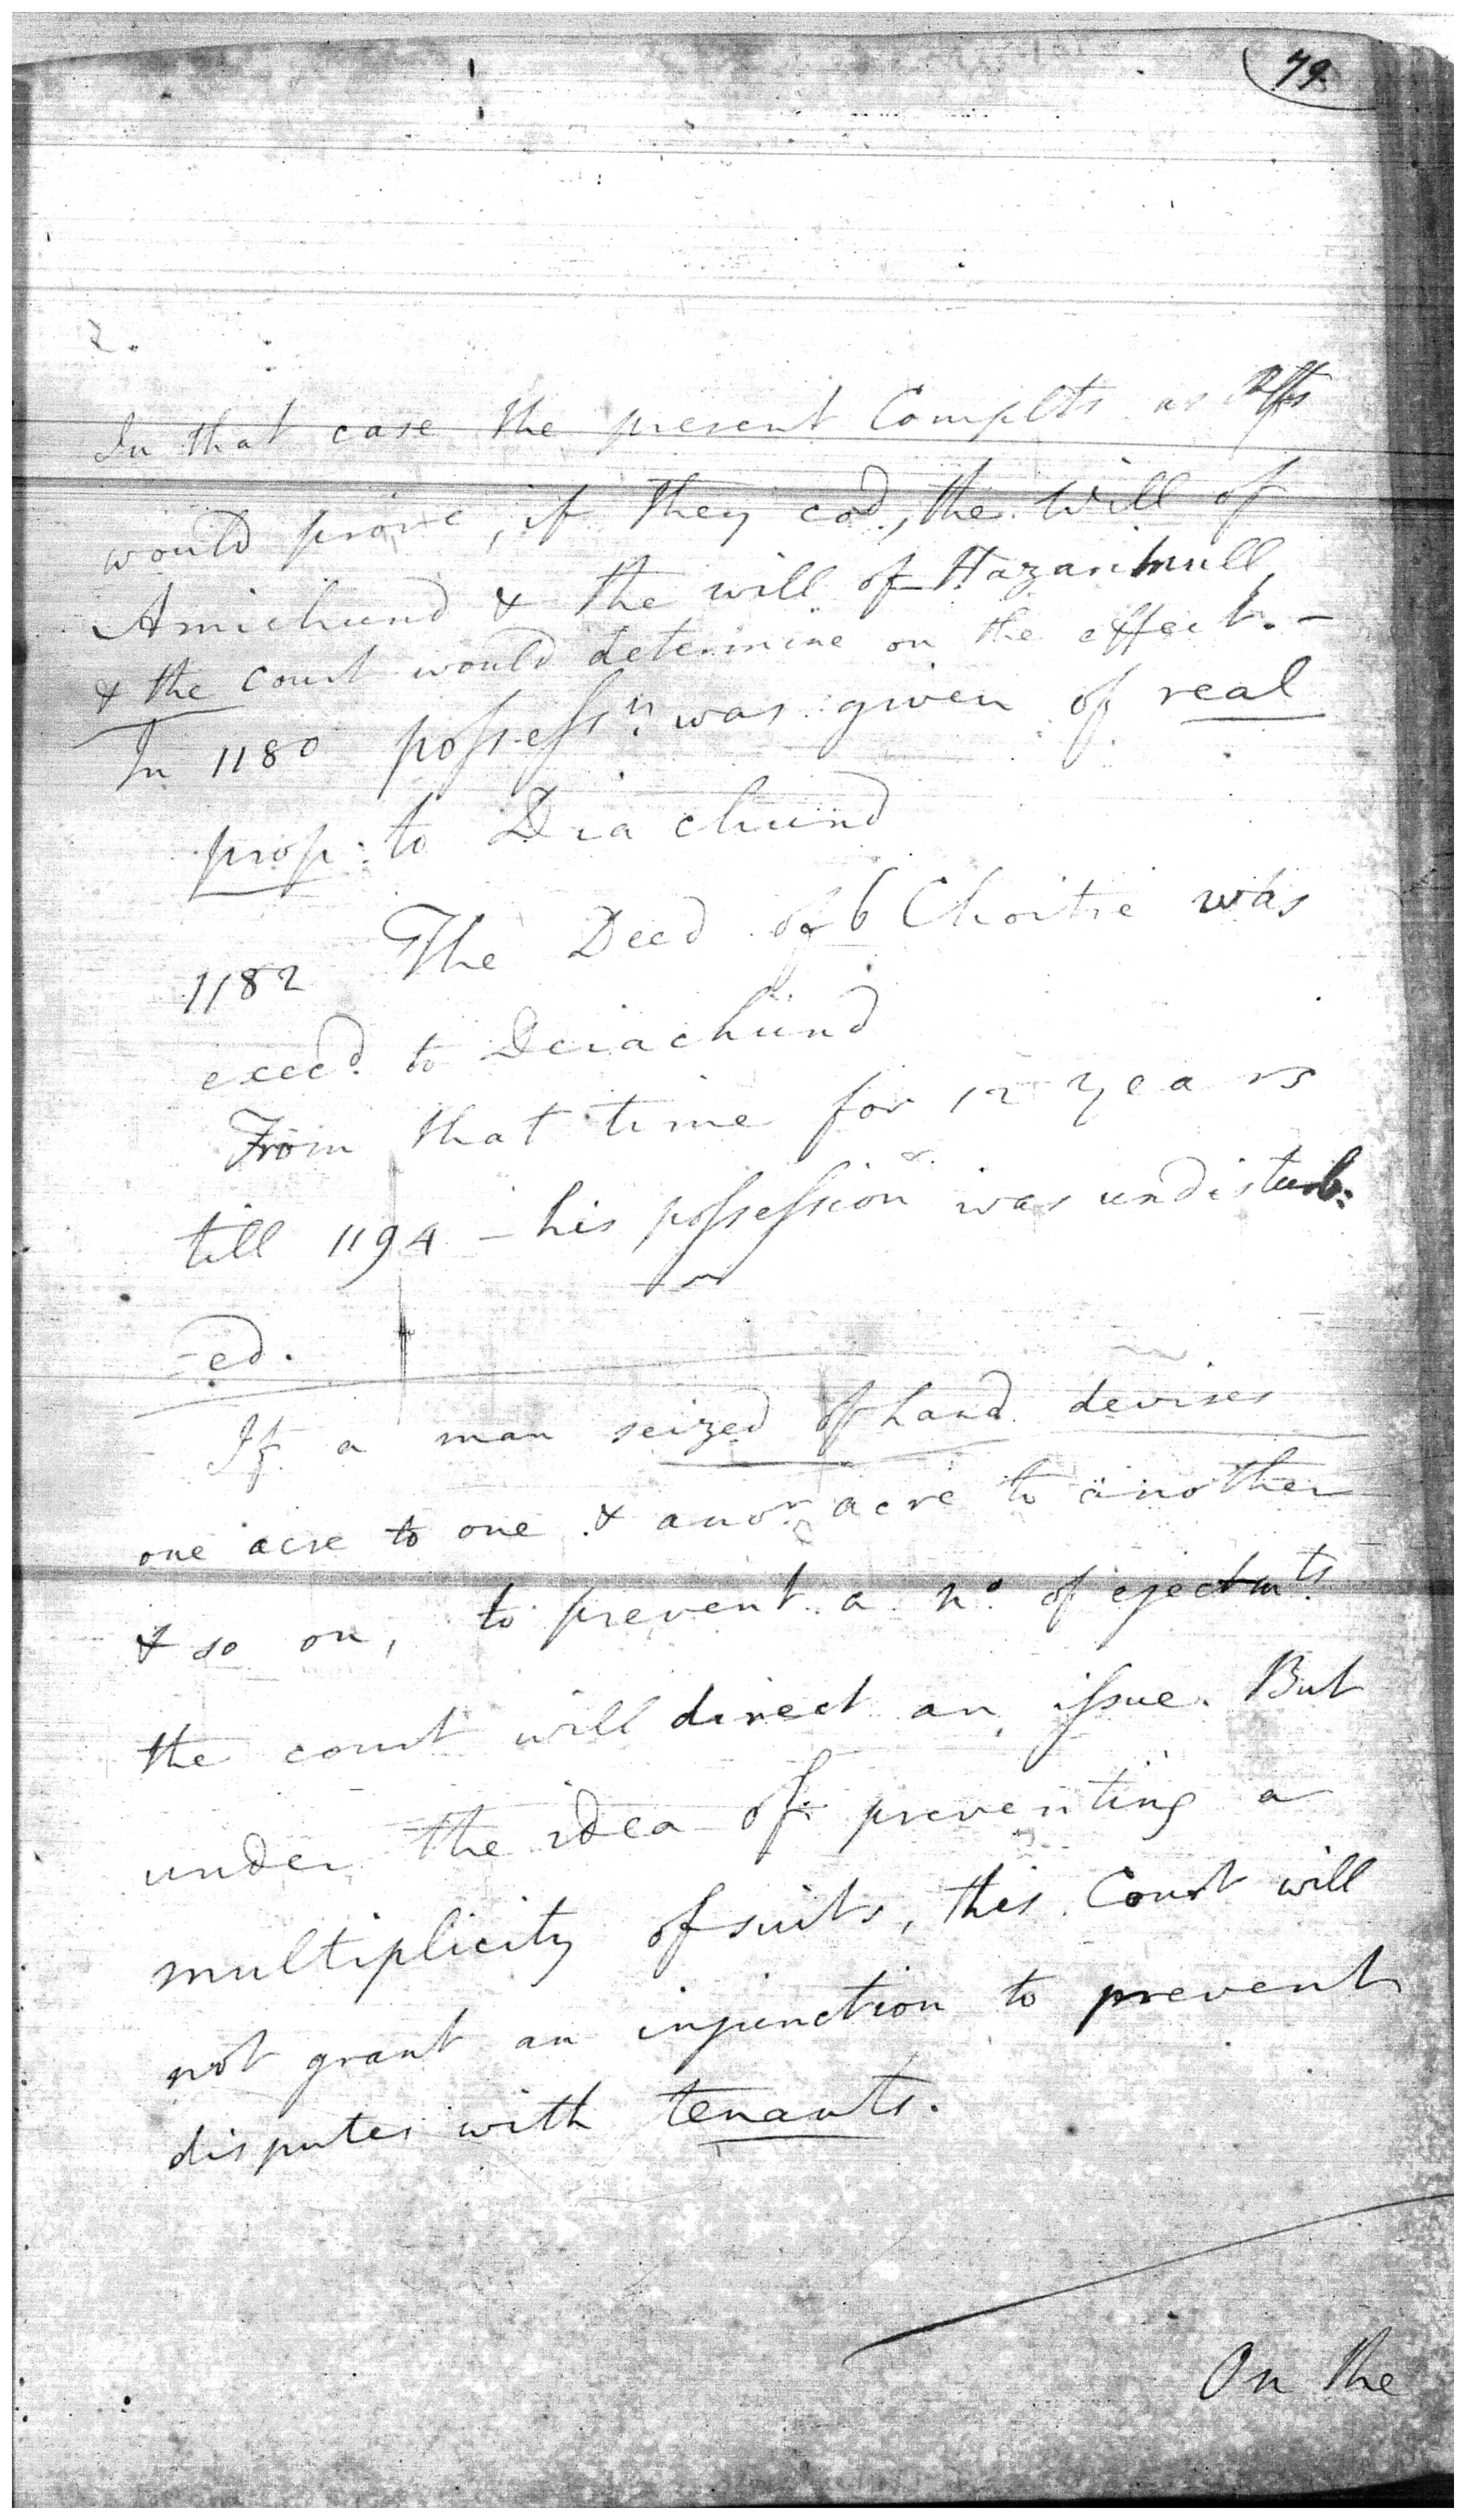 79
2.
In that case the present Complts as Plffs
would prove, if they cod, the Will of
Amichund & the will of Hazarimull,
& the court would determine on the effect. –
In 1180 possessn. was given of real
prop: to Diachund
1182 The Deed of 6 Choitre was
execd. to Deiachund
From that time for 12 years
till 1194 – his possession was undisturb:
-ed.
If a man seized of Land devises
one acre to one & anor. acre to another
& so on, to prevent a no. of ejectmts.
the court will direct an issue. But
under the idea of preventing a
multiplicity of suits, this Court will
not grant an injunction to prevent
disputes with tenants.
On the